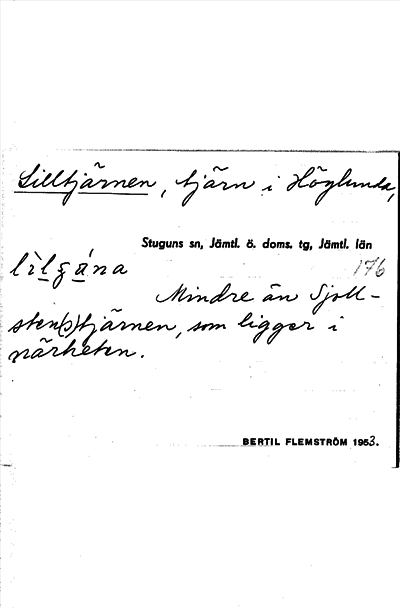 Lilltjärnen, tjärn i Höglunda,
Stuguns sn, Jämtl. ö. doms. tg, Jämtl. län
176
Mindre än Sjoll-
sten(s)tjärnen, som ligger i
närheten.
BERTIL FLEMSTRÖM 1953.